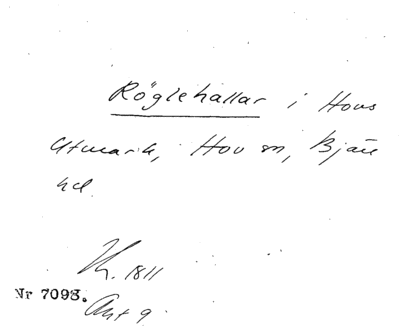 Röglehallar i Hovs
Utmark, Hov sn, Bjäre
hd.
Kr. 1811
Nr 7093.
Akt 9.